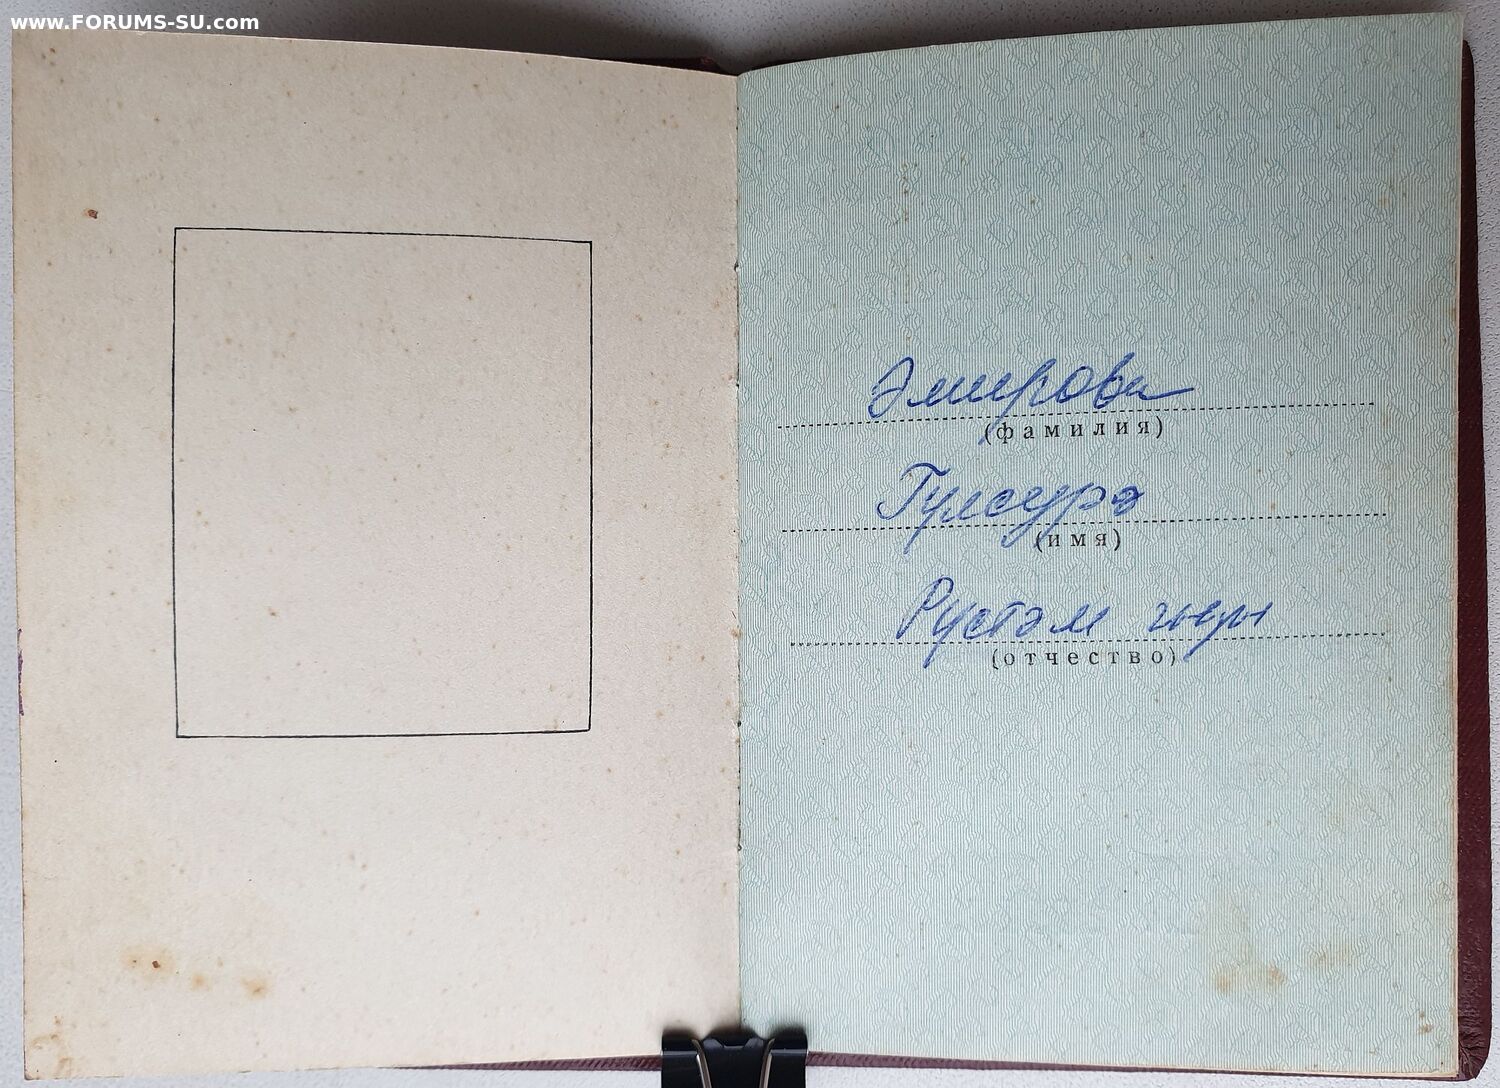 www.FORUMS-SU.com
Әмирова
(фамилия)
Гүлсүрә
(имя)
Рүстәм гызы
(отчество)